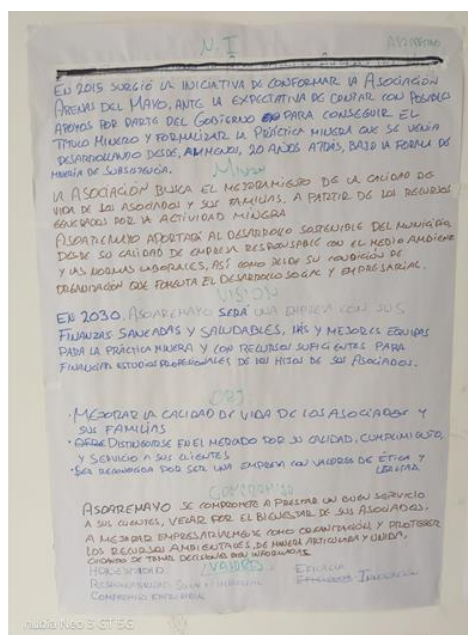 N.I
EN 2015 SURGIÓ LA INICIATIVA DE CONFORMAR LA ASOCIACIÓN
ARENAS DEL MAYO, ANTE LA EXPECTATIVA DE CONTAR CON POSIBLES
APOYOS POR PARTE DEL GOBIERNO PARA CONSEGUIR EL
TÍTULO MINERO Y FORMALIZAR LA PRÁCTICA MINERA QUE SE VENÍA
DESARROLLANDO DESDE, AL MENOS, 20 AÑOS ATRÁS, BAJO LA FORMA DE
MINERÍA DE SUBSISTENCIA.
LA ASOCIACIÓN BUSCA EL MEJORAMIENTO DE LA CALIDAD DE
VIDA DE LOS ASOCIADOS Y SUS FAMILIAS, A PARTIR DE LOS RECURSOS
GENERADOS POR LA ACTIVIDAD MINERA
APORTARÁ AL DESARROLLO SOSTENIBLE DEL MUNICIPIO
DESDE SU CALIDAD DE EMPRESA RESPONSABLE CON EL MEDIO AMBIENTE
Y LAS NORMAS LABORALES, ASÍ COMO DESDE SU CONDICIÓN DE
ORGANIZACIÓN QUE FOMENTA EL DESARROLLO SOCIAL Y EMPRESARIAL.
VISIÓN
EN 2030, ASOAREMAYO SERÁ UNA EMPRESA CON SUS
FINANZAS SANEADAS Y SALUDABLES, MÁS Y MEJORES EQUIPOS
PARA LA PRÁCTICA MINERA Y CON RECURSOS SUFICIENTES PARA
FINANCIAR ESTUDIOS PROFESIONALES DE LOS HIJOS DE SUS ASOCIADOS.
OBJ
· MEJORAR LA CALIDAD DE VIDA DE LOS ASOCIADOS Y
SUS FAMILIAS
· DISTINGUIRSE EN EL MERCADO POR SU CALIDAD, CUMPLIMIENTO,
Y SERVICIO A SUS CLIENTES
· SER RECONOCIDA POR SER UNA EMPRESA CON VALORES DE ÉTICA Y
LEALTAD.
COMPROMISO
ASOAREMAYO SE COMPROMETE A PRESTAR UN BUEN SERVICIO
A SUS CLIENTES, VELAR POR EL BIENESTAR DE SUS ASOCIADOS,
A MEJORAR EMPRESARIALMENTE COMO ORGANIZACIÓN Y PROTEGER
LOS RECURSOS AMBIENTALES, DE MANERA ARTICULADA Y UNIDA,
CUIDANDO DE TOMAR DECISIONES BIEN INFORMADAS
VALORES
HONESTIDAD EFICACIA
RESPONSABILIDAD SOCIAL INNOVACIÓN
COMPROMISO EMPRESARIAL
nubia Neo 3 GT 5G